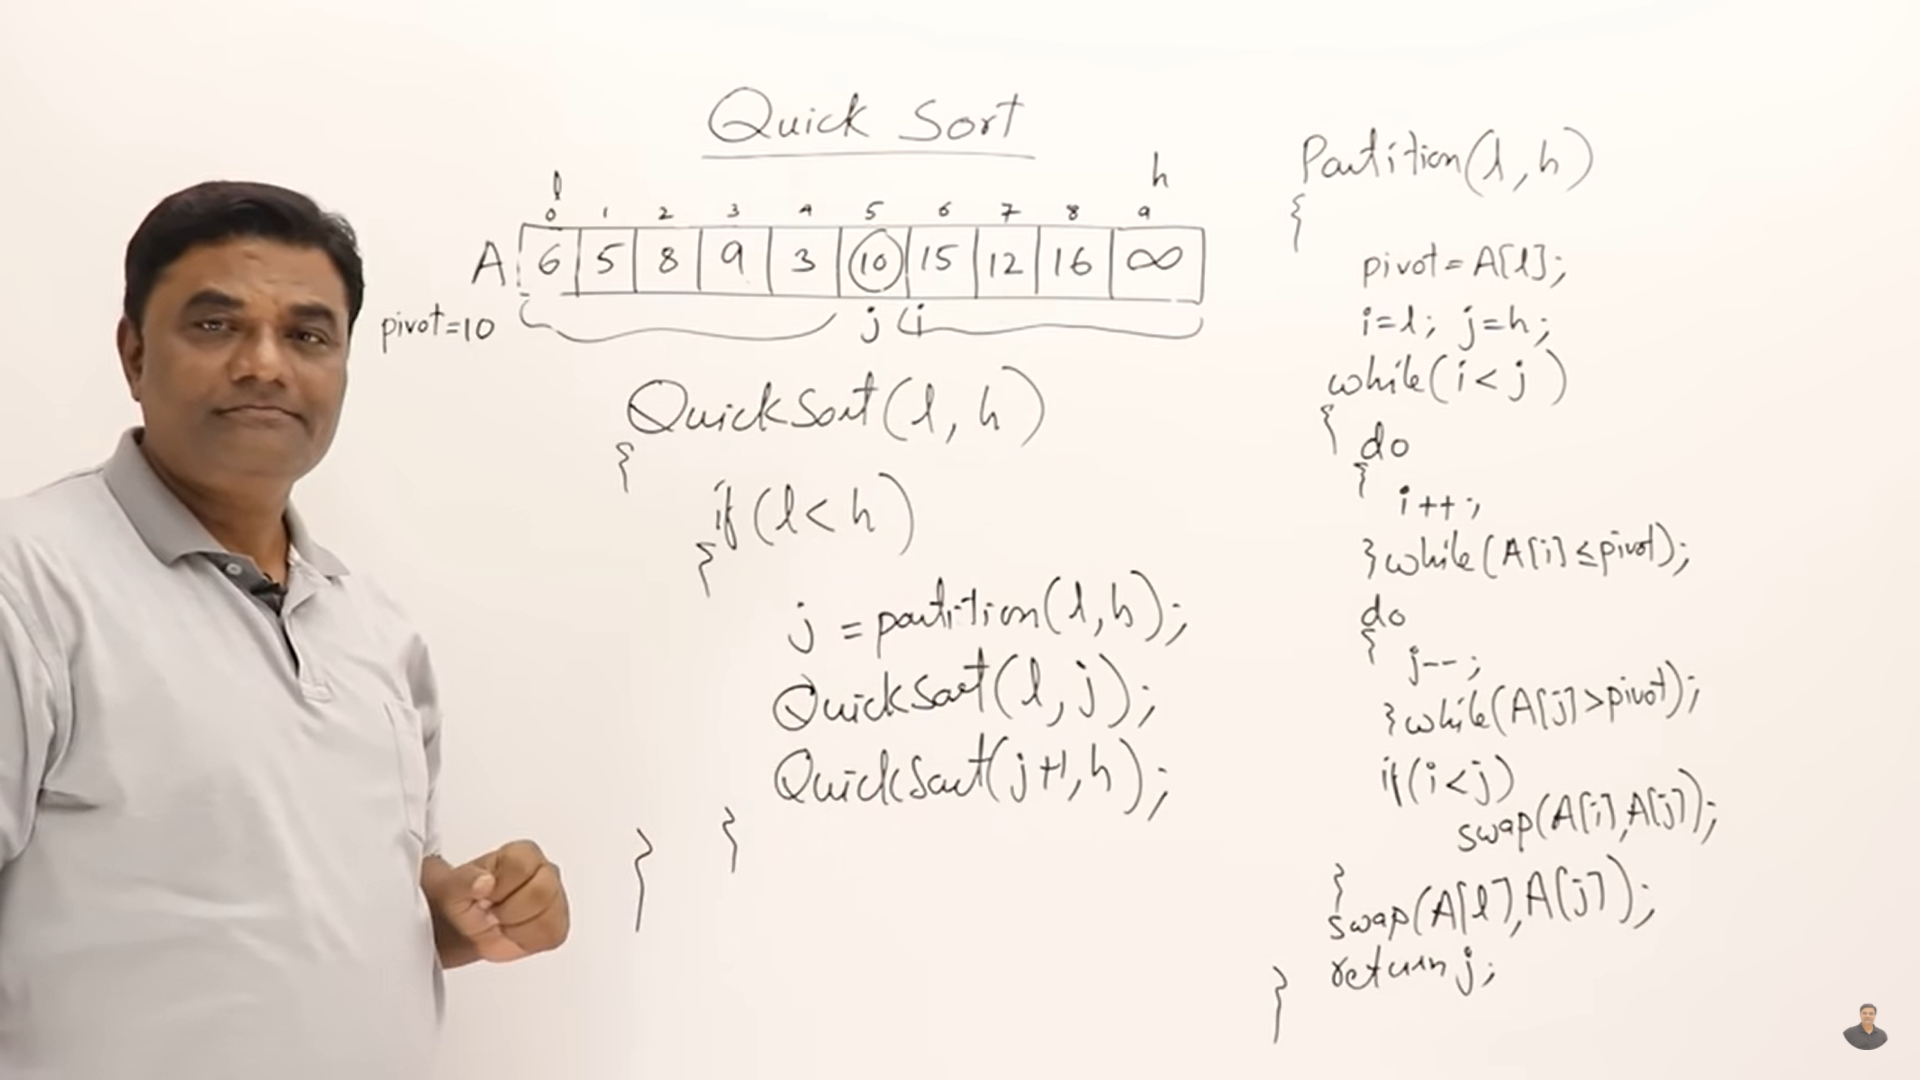 Quick Sort
l h
0 1 2 3 4 5 6 7 8 9
A 6 5 8 9 3 10 15 12 16 ∞
pivot=10 j i
QuickSort(l,h)
{
if(l<h)
{
j=partition(l,h);
QuickSort(l,j);
QuickSort(j+1,h);
}
}
Partition(l,h)
{
pivot=A[l];
i=l; j=h;
while(i<j)
{
do
{
i++;
}while(A[i]≤pivot);
do
{
j--;
}while(A[j]>pivot);
if(i<j)
swap(A[i],A[j]);
}
swap(A[l],A[j]);
return j;
}